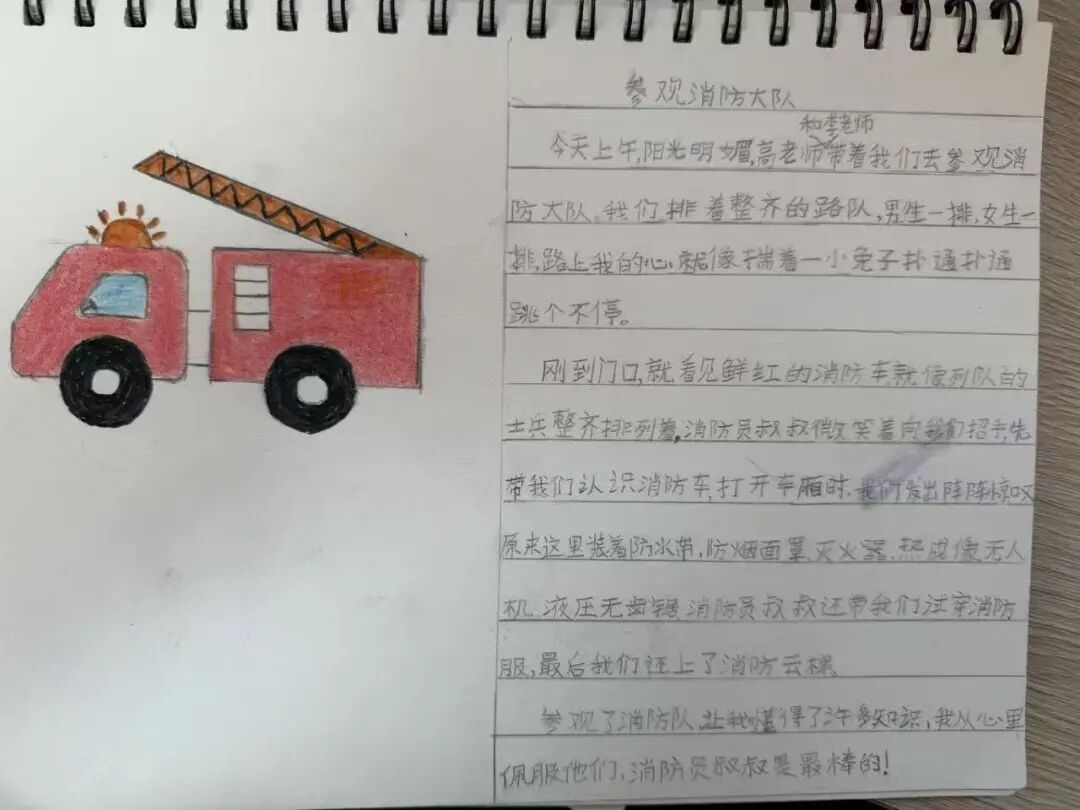 参观消防大队
和李老师
今天上午,阳光明媚,高老师带着我们去参观消
防大队。我们排着整齐的路队,男生一排,女生一
排,路上我的心,就像揣着一小兔子扑通扑通
跳个不停。
刚到门口,就看见鲜红的消防车,就像列队的
士兵整齐排列着,消防员叔叔微笑着向我们招手,先
带我们认识消防车,打开车厢时,我们发出阵阵惊叹
原来这里装着防水带,防烟面罩、灭火器、热成像无人
机、液压无齿锯,消防员叔叔还带我们试穿消防
服,最后我们还上了消防云梯。
参观了消防队,让我懂得了许多知识,我从心里
佩服他们,消防员叔叔是最棒的!